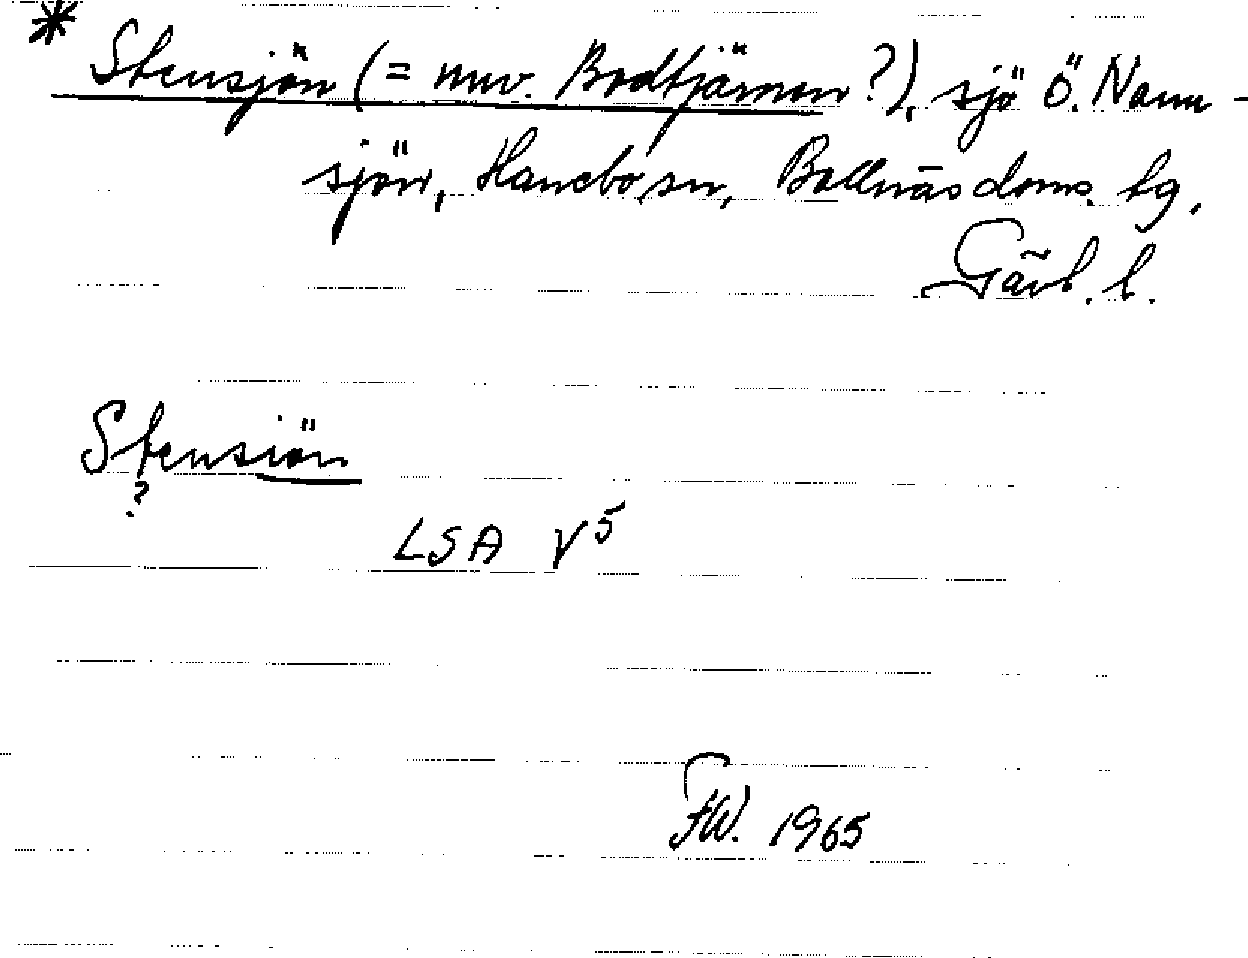 * Stensjön (= nuv. Bodtjärnen?), sjö Ö. Namn-
sjön, Hanebo sn, Bollnäs doms. tg,
Gävl. l.
Stensiön
?
LSA V5
FW. 1965